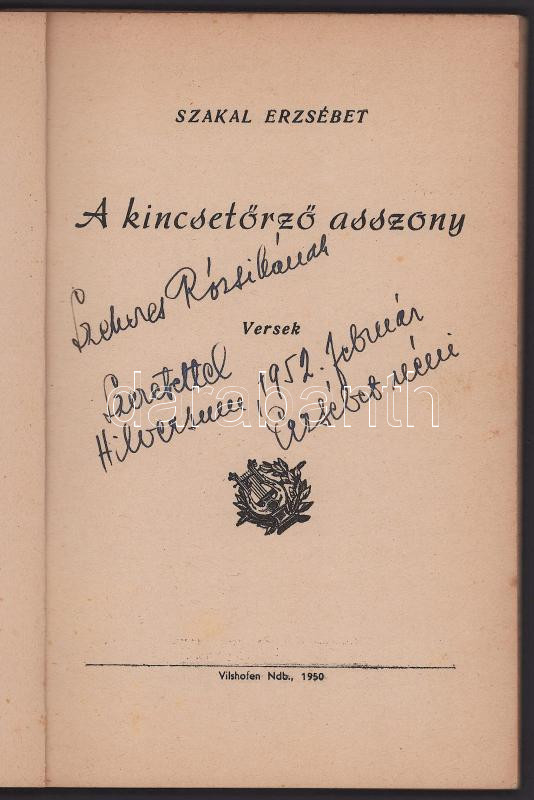 SZAKAL ERZSÉBET
A kincsetőrző asszony
Szekeres Rózsikának
Versek
Szeretettel
Hilversum, 1952. február
Erzsébet néni
darabanth
Vilshofen Ndb., 1950